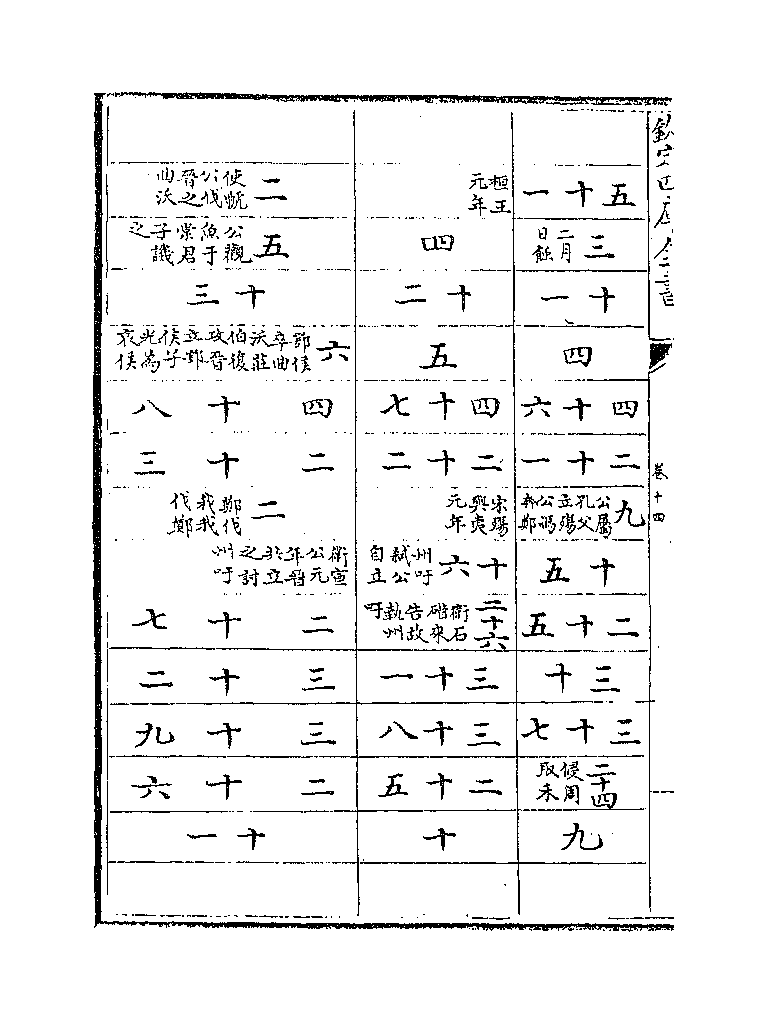 欽定四庫全書
卷十四
五十一
三 二月日蝕
十一
四
四十六
二十一
九 公屬孔父立殤公馮奔鄭
十五
二十五
三十
三十七
二十四 侵周取禾
九
桓王元年
四
十二
五
四十七
二十二
宋殤與夷元年
十六 州吁弑公自立
二十六 衛石碏來告故執州吁
三十一
三十八
二十五
十
二 使虢公伐晉之曲沃
五 公觀魚于棠君子譏之
十三
六 鄂侯卒曲沃莊伯復攻晉立鄂侯子光為哀侯
四十八
二十三
二 鄭伐我我伐鄭
衛宣公元年晉共立之討州吁
二十七
三十二
三十九
二十六
十一